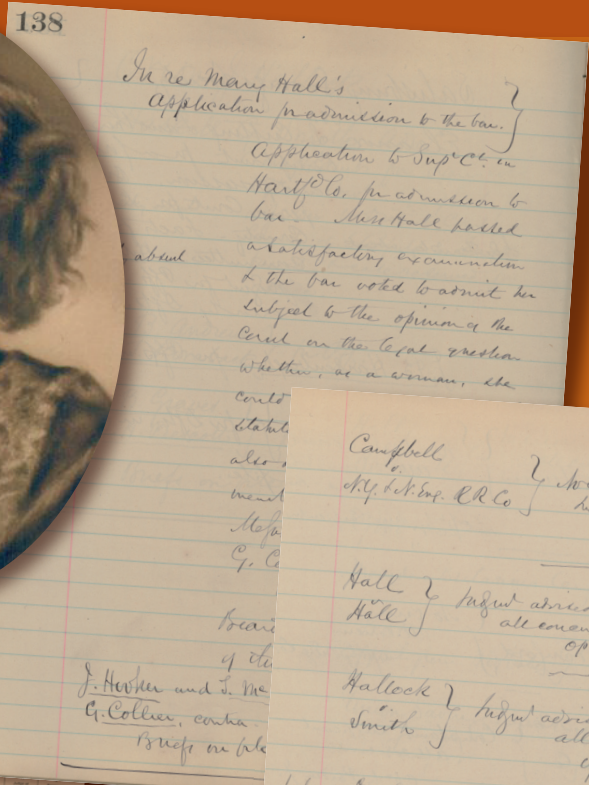 138
In re Mary Hall's
application for admission to the bar.
Application to Supr Ct. in
Hartfd Co. for admission to
bar - Miss Hall passed
a satisfactory examination
absent
& the bar voted to admit her
subject to the opinion of the
court on the legal question
whether, as a woman, she
could
statut
also
G. C
of the
J. Hooker and T. Mc
G. Collier, contra.
Briefs on file
Campbell
v.
N.Y. & N. Eng. R R Co
No
Hall
v.
Hall
Judgmt advised
all concur
op
Hallock
v.
Smith
Judgmt advise
all